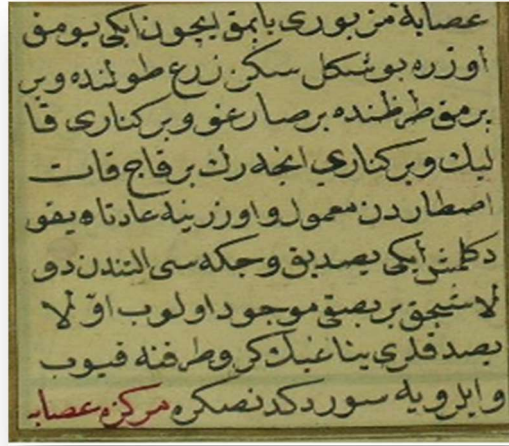 عصابهٔ مزبوری یاپمق ایچون ایکی یومق
اوزره بو شکل سکز زرع طولنده و بر
برمق طرظنده بر صارغو و بر کناری قا
لیك و بر کناری اینجه رك بر قاچ قات
اصطاردن معمول و اوزرینه عادتا
دکلمش ایکی یصدیق و جکه سی التندن دو
لاشیجق بر یصیق موجود اولوب اوّلا
یصدقلری یناغك کر و طرفنه قیوب
و ایلرویه سوردکدنصکره مرکز عصابه